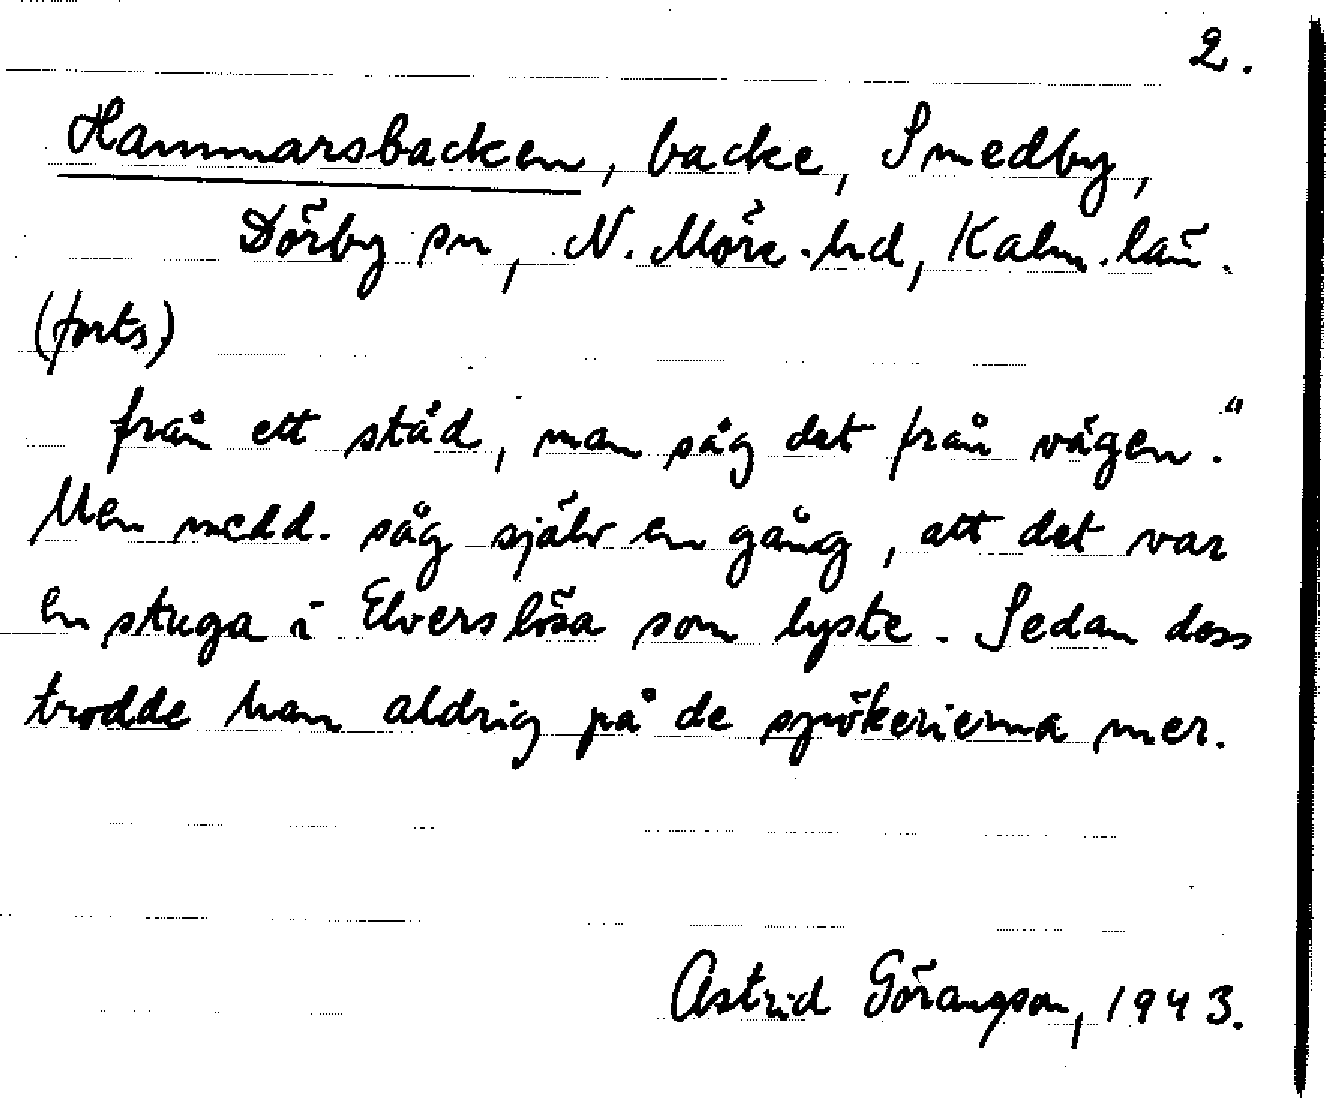 2.
Hammarsbacken, backe, Smedby,
Dörby sn, N. Möre hd, Kalm. län.
(forts)
från ett städ, man såg det från vägen."
Men medd. såg själv en gång, att det var
en stuga i Elverslösa som lyste. Sedan dess
trodde han aldrig på de spökerierna mer.
Astrid Görangson, 1943.